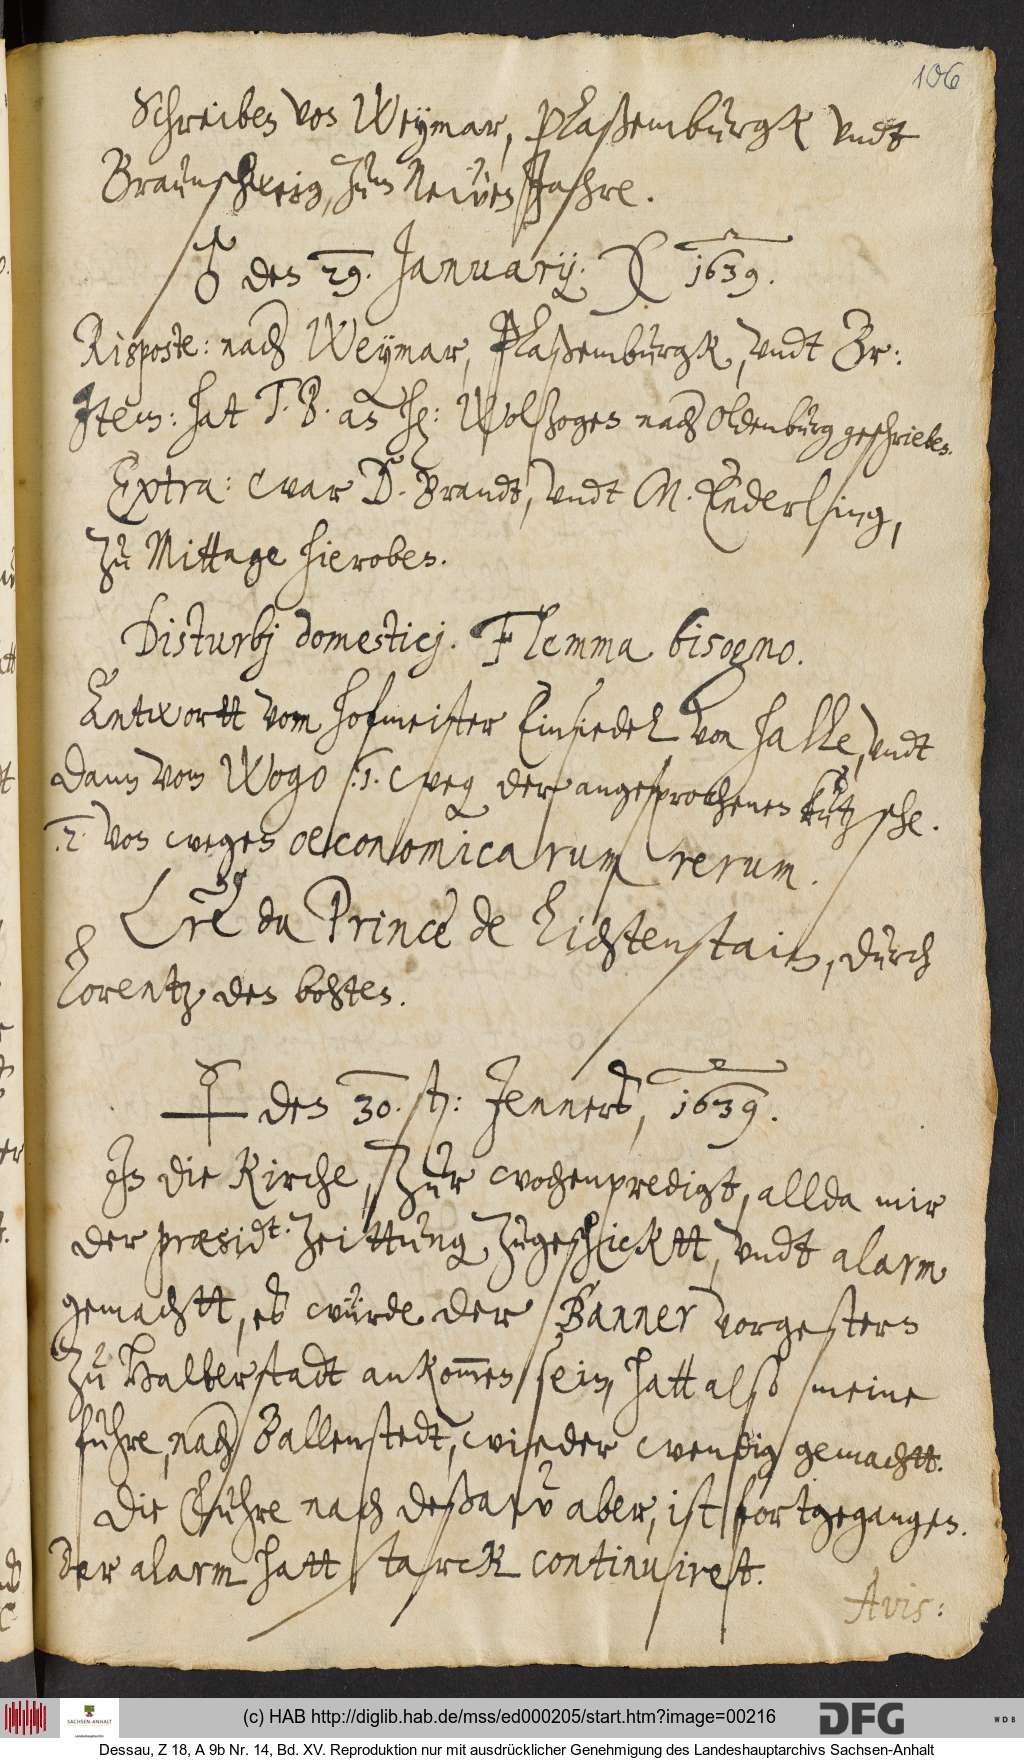 106
Schreiben von Weymar, Plaßemburgk vndt
Braunschweig, zum Neẅen Jahre.
♂ den 29. January. 1639.
Risposte: nach Weymar, Plaßemburgk, vndt Br:
Item: hat T. B. an H: Wolzogen nach Oldenburg geschrieben.
Extra: war D. Brandt, vndt M. Enderling,
zu Mittage hieroben.
Disturbj domesticj. Flemma bisogno.
Antwortt vom hofmeister Einsiedel von Halle, vndt
dann vom Wogo :1. weg der angesprochenen kutzsche.
.2. von wegen oeconomicarum rerum.
Lre du Prince de Lichtenstain, durch
Lorentz den bohten.
den 30. Jenners, 1639.
In die Kirche, zur wochenpredigt, allda mir
der præsidt. zeittung zugeschicktt, vndt alarm
gemachtt, es würde der Banner vorgestern
zu Halberstadt ankom̅en sein, hatt also meine
fuhre, nach Ballenstedt, wieder wendig gemachtt.
Die fuhre nach deßaw aber, ist fortgegangen.
Der alarm hatt starck continuiret.
Avis:
(c) HAB http://diglib.hab.de/mss/ed000205/start.htm?image=00216
SACHSEN-ANHALT
DFG
WDB
Dessau, Z 18, A 9b Nr. 14, Bd. XV. Reproduktion nur mit ausdrücklicher Genehmigung des Landeshauptarchivs Sachsen-Anhalt